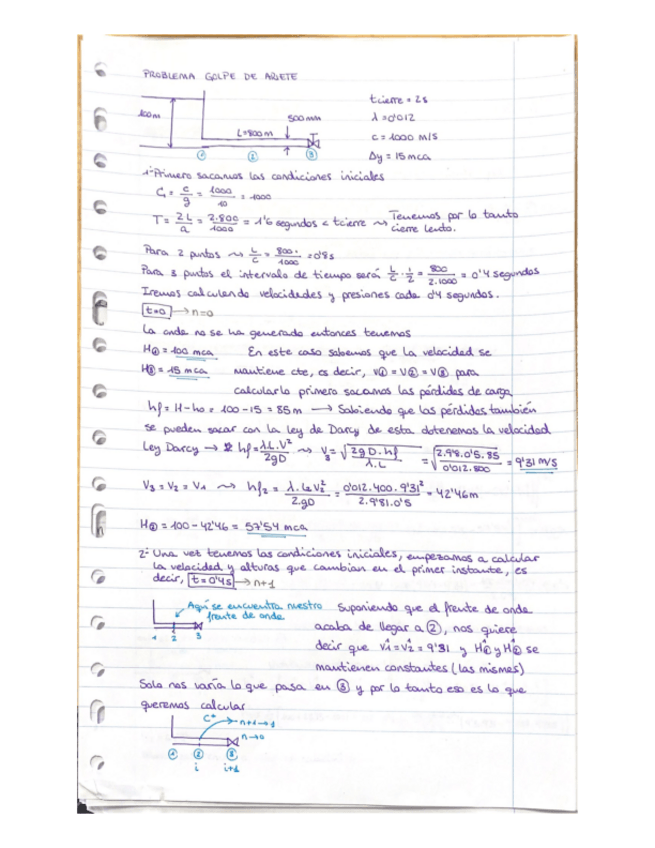 PROBLEMA GOLPE DE ARIETE
100m
L=800m
500mm
1
2
3
tcierre = 2s
λ = 0'012
c = 1000 m/s
Δy = 15 mca
1- Primero sacamos las condiciones iniciales
C₁ = c/g = 1000/10 = 1000
T = 2L/a = 2.800/1000 = 1'6 segundos < tcierre ⇝ Tenemos por lo tanto
cierre lento.
Para 2 puntos ⇝ L/c = 800/1000 = 0'8s
Para 3 puntos el intervalo de tiempo será L/c · 1/2 = 800/2.1000 = 0'4 segundos
Iremos calculando velocidades y presiones cada 0'4 segundos.
t=0 → n=0
La onda no se ha generado entonces tenemos
H① = 100 mca En este caso sabemos que la velocidad se
H③ = 15 mca mantiene cte, es decir, v① = v② = v③ para
calcularla primero sacamos las pérdidas de carga
hf = H - ho = 100 - 15 = 85 m → Sabiendo que las pérdidas también
se pueden sacar con la ley de Darcy de esta obtenemos la velocidad
Ley Darcy → hf = λL.V²/2gD ⇝ V₃ = √(2gD.hf/λ.L) = √(2.9'8.0'5.85/0'012.800) = 9'31 m/s
V₃ = V₂ = V₁ ⇝ hf₂ = λ.L₂V₂²/2.gD = 0'012.400.9'31²/2.9'81.0'5 = 42'46m
H② = 100 - 42'46 = 57'54 mca
2- Una vez tenemos las condiciones iniciales, empezamos a calcular
la velocidad y alturas que cambian en el primer instante, es
decir, t=0'4s → n+1
Aquí se encuentra nuestro
frente de onda
1 2 3
Suponiendo que el frente de onda
acaba de llegar a ②, nos quiere
decir que v₁¹ = v₂¹ = 9'31 y H①¹ y H②¹ se
mantienen constantes (las mismas)
Solo nos varía lo que pasa en ③ y por lo tanto eso es lo que
queremos calcular
C⁺
n+1→1
n→0
① ② ③
i i+1